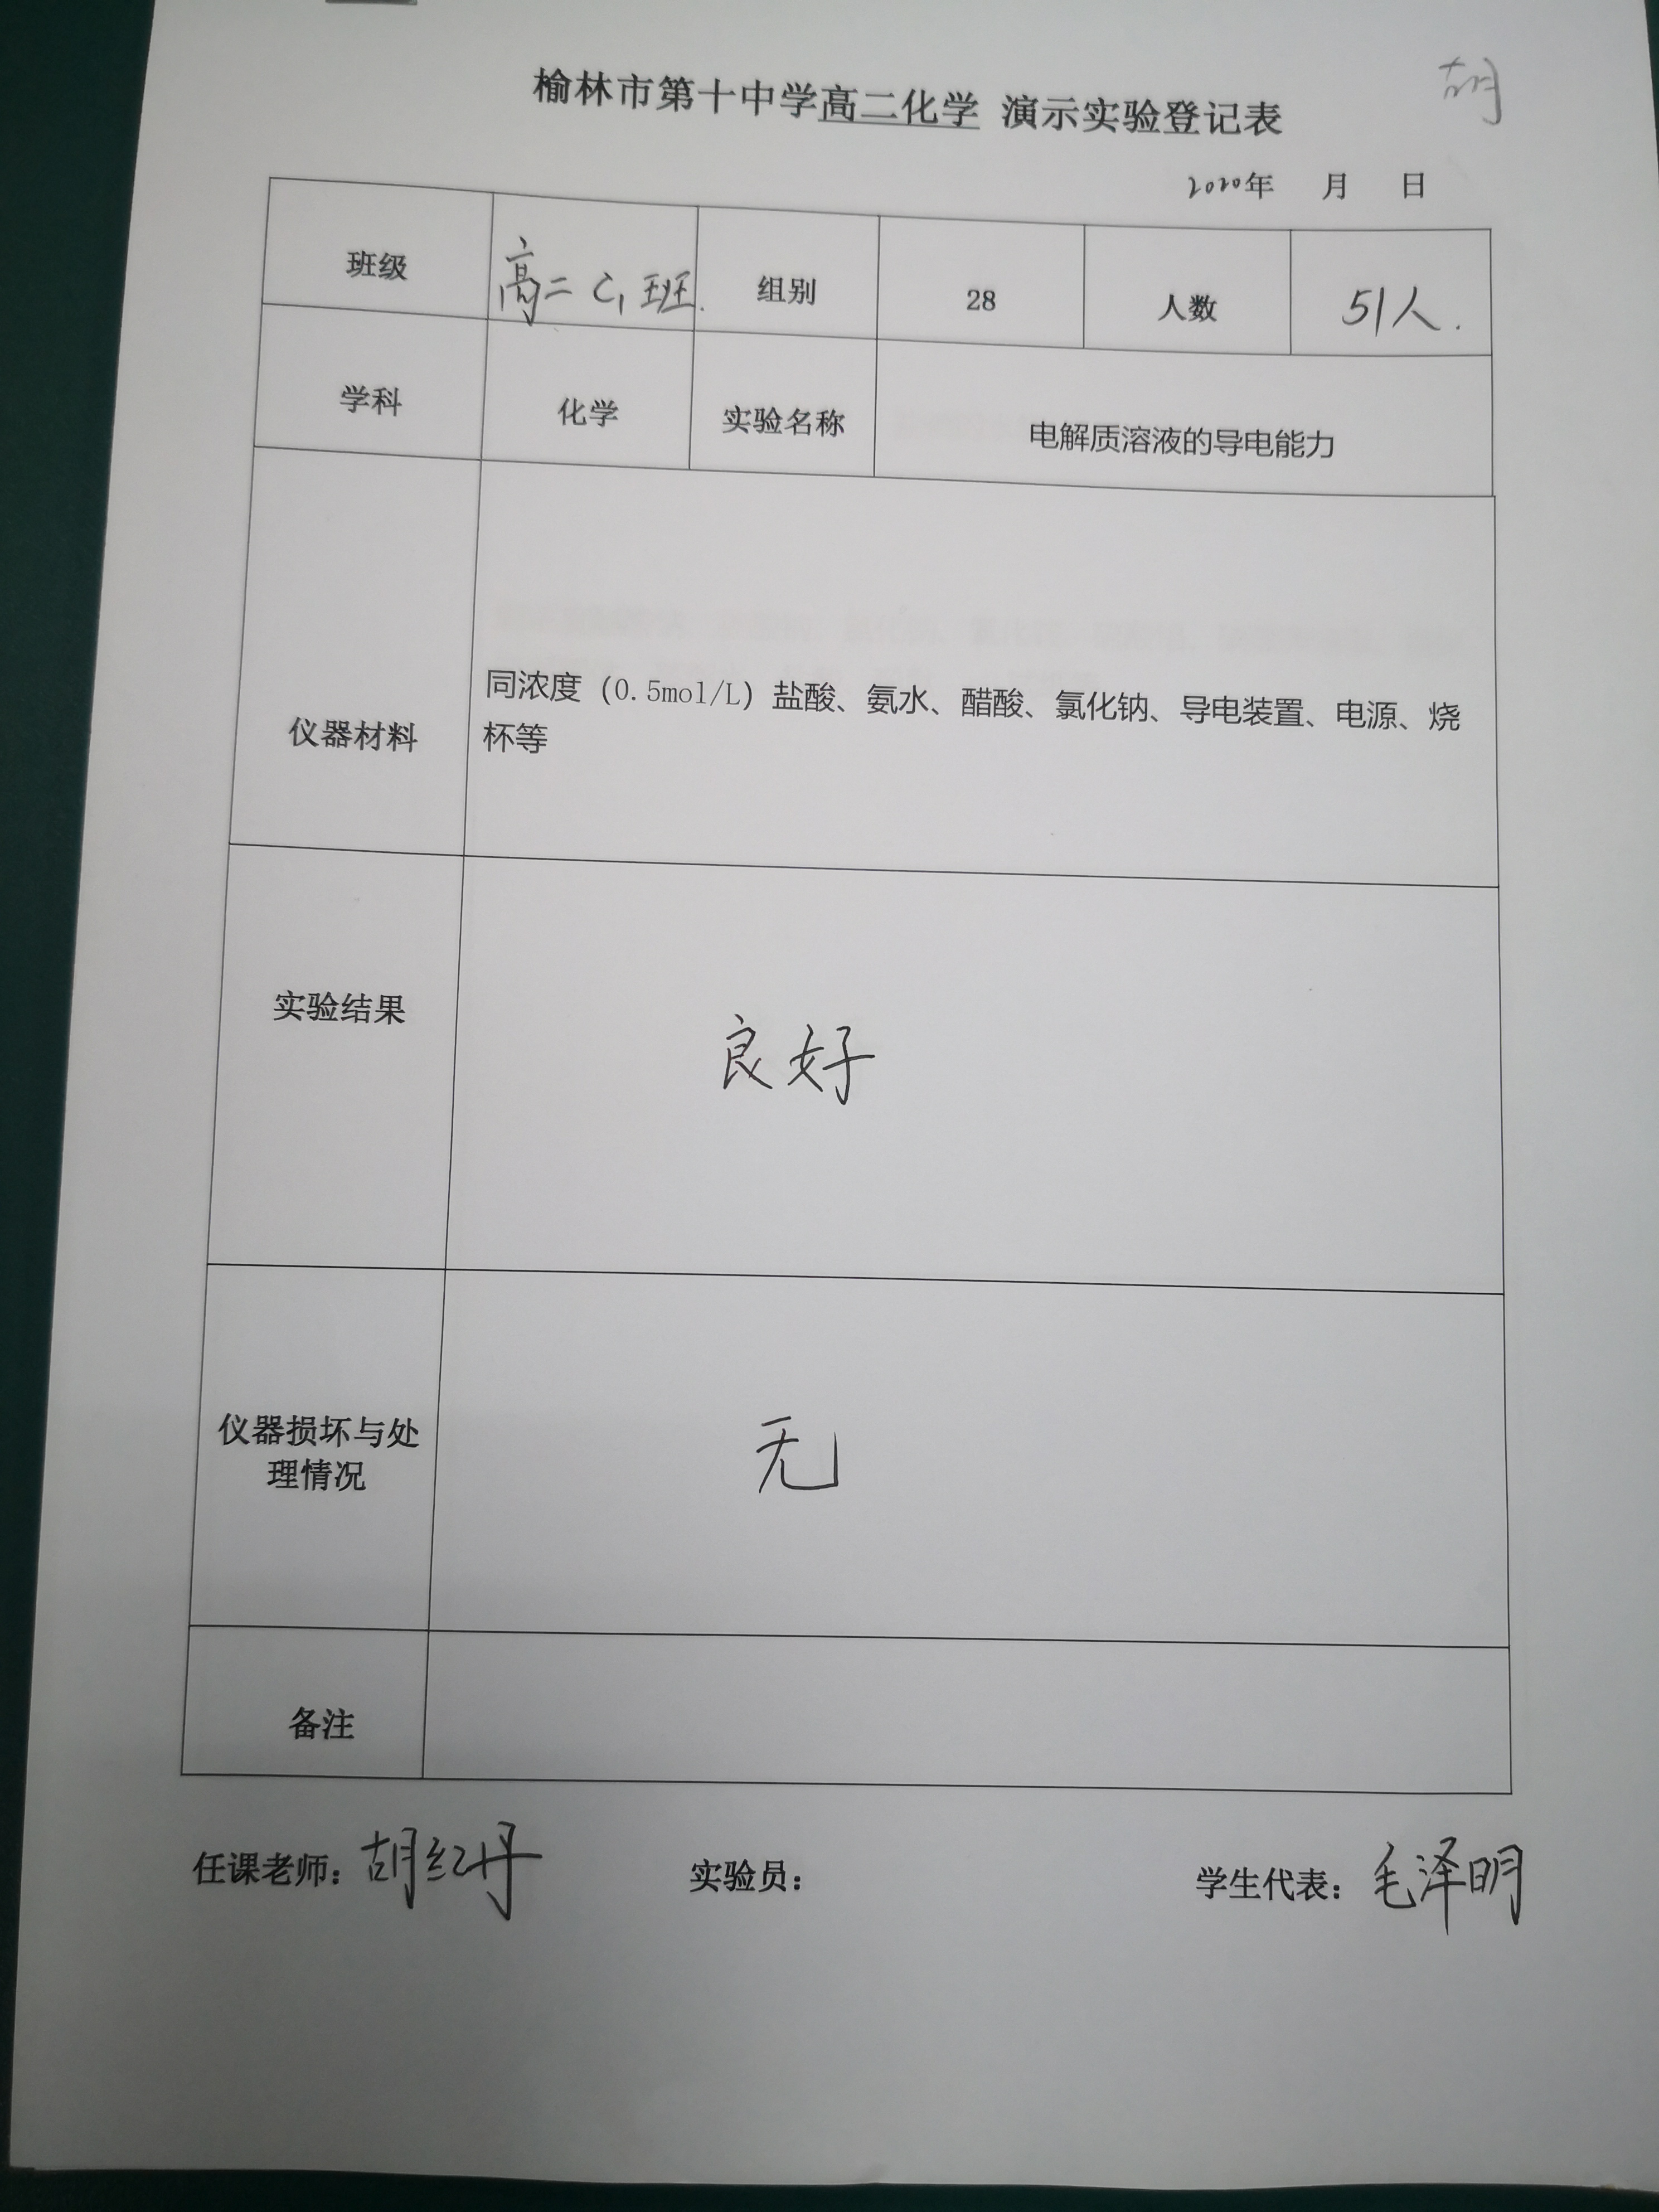 胡
榆林市第十中学高二化学 演示实验登记表
2020年 月 日
班级 高二C1班. 组别 28 人数 51人.
学科 化学 实验名称 电解质溶液的导电能力
仪器材料
同浓度（0.5mol/L）盐酸、氨水、醋酸、氯化钠、导电装置、电源、烧
杯等
实验结果 良好
仪器损坏与处
理情况
无
备注
任课老师：胡红丹 实验员： 学生代表：毛泽明